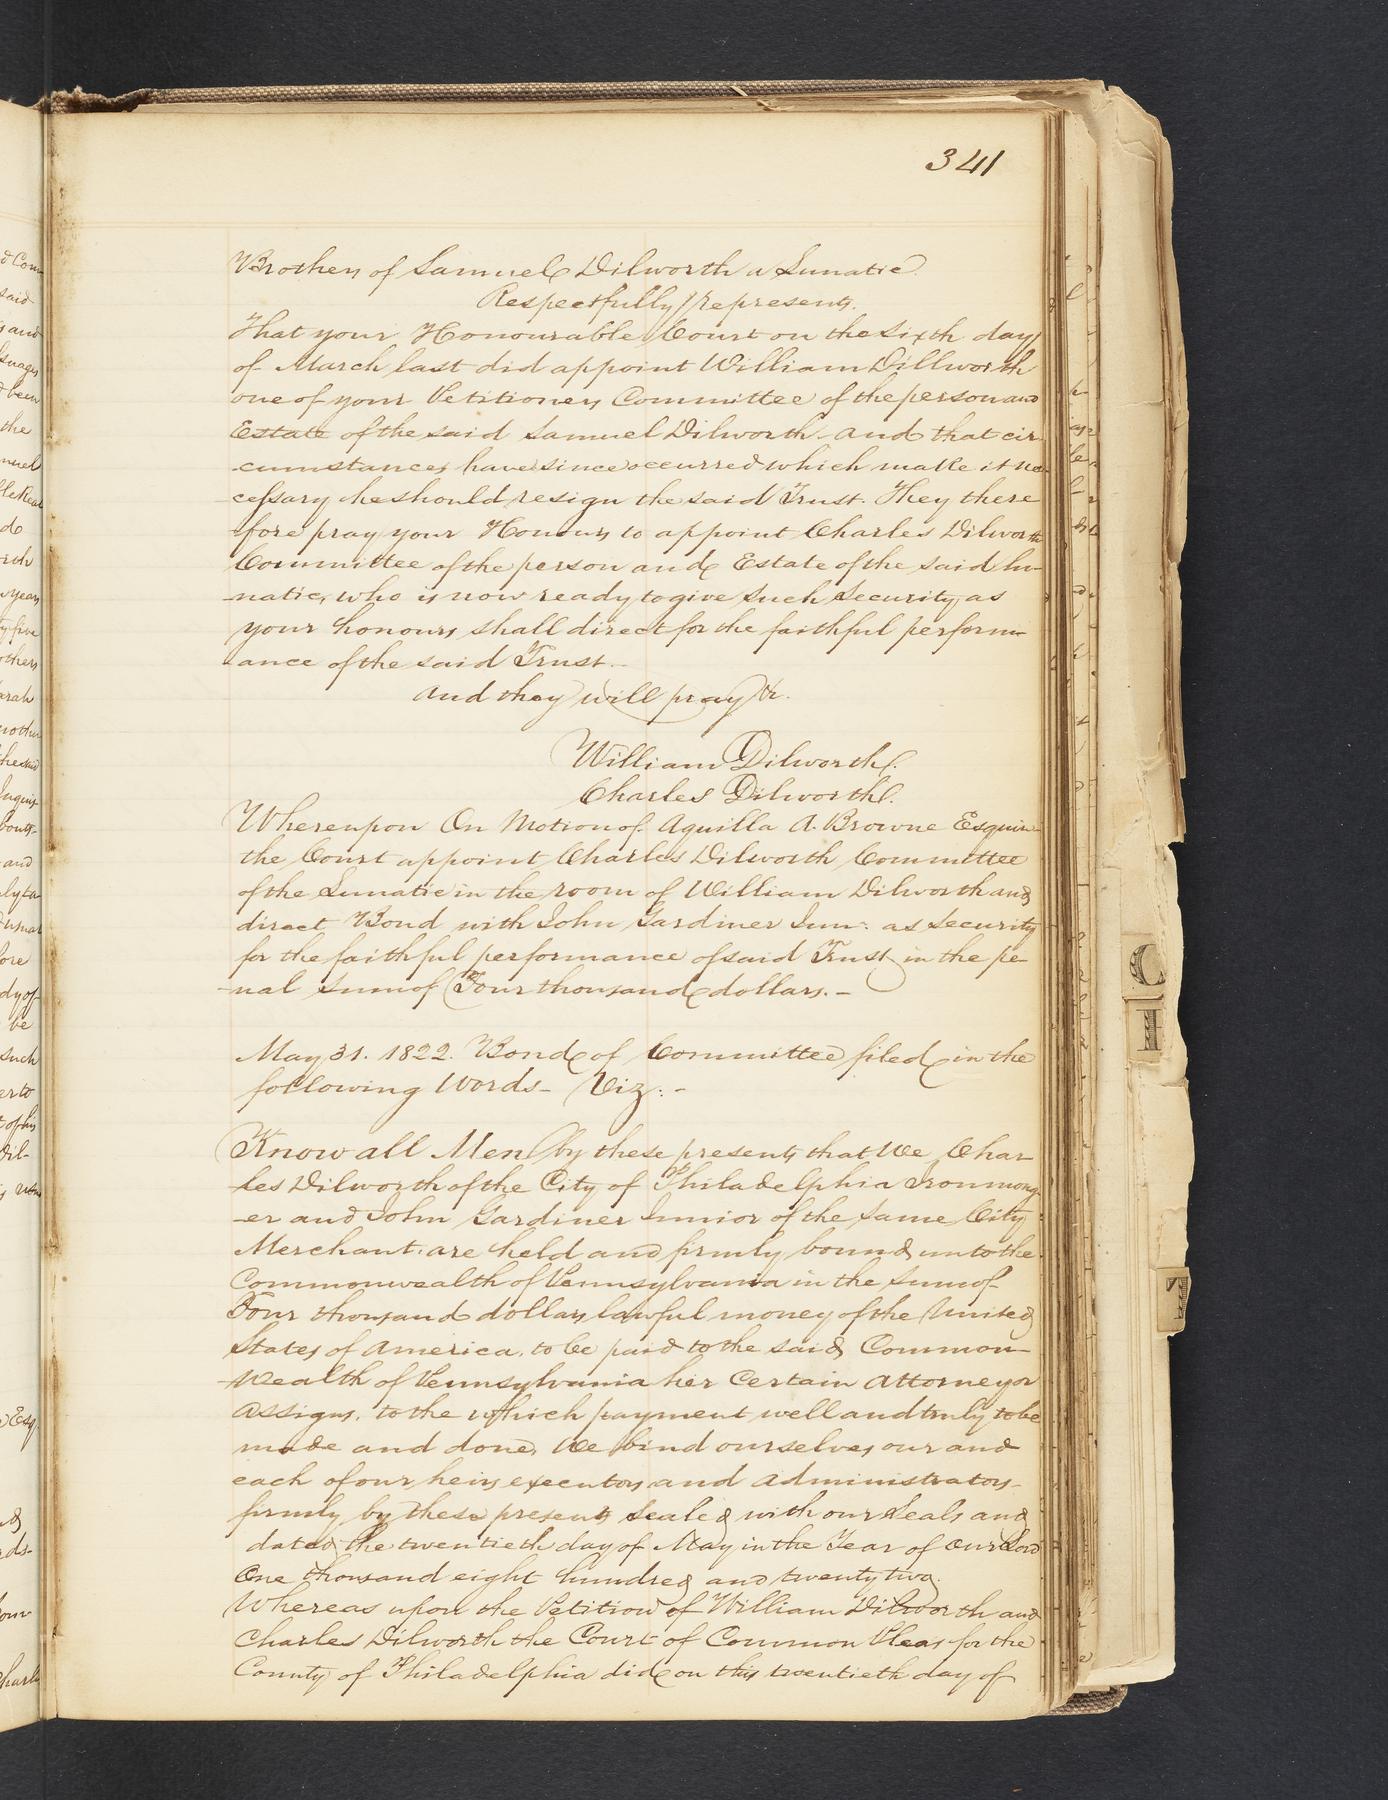 341
Brothers of Samuel Dilworth a Lunatic
Respectfully represents.
That your Honourable Court on the sixth day
of March last did appoint William Dillworth
one of your Petitioners Committee of the person and
Estate of the said Samuel Dilworth and that cir
cumstances have since occurred which make it ne
cessary he should resign the said Trust. They there
fore pray your Honours to appoint Charles Dilworth
Committee of the person and Estate of the said Lu
natic, who is now ready to give such security as
your honours shall direct for the faithful perform
ance of the said Trust.
And they will pray &c.
William Dilworth
Charles Dilworth
Whereupon On Motion of Aquilla A. Browne Esquire
the Court appoint Charles Dilworth Committee
of the Lunatic in the room of William Dilworth and
direct Bond with John Gardiner Jun: as security
for the faithful performance of said Trust in the pe
nal sum of Four thousand dollars. -
May 31. 1822. Bond of Committee filed in the
following Words - Viz: -
Know all Men by these presents that We Char
les Dilworth of the City of Philadelphia Ironmong
er and John Gardiner Junior of the same City
Merchant are held and firmly bound unto the
Commonwealth of Pennsylvania in the sum of
Four thousand dollars lawful money of the United
States of America, to be paid to the said Common
Wealth of Pennsylvania her Certain Attorney or
Assigns. to the which payment well and truly to be
made and done, We bind ourselves our and
each of our heirs executors and administrators
firmly by these presents sealed with our Seals and
dated the twentieth day of May in the Year of Our Lord
One thousand eight hundred and twenty two
Whereas upon the Petition of William Dilworth and
Charles Dilworth the Court of Common Pleas for the
County of Philadelphia did on this twentieth day of
C
I
T